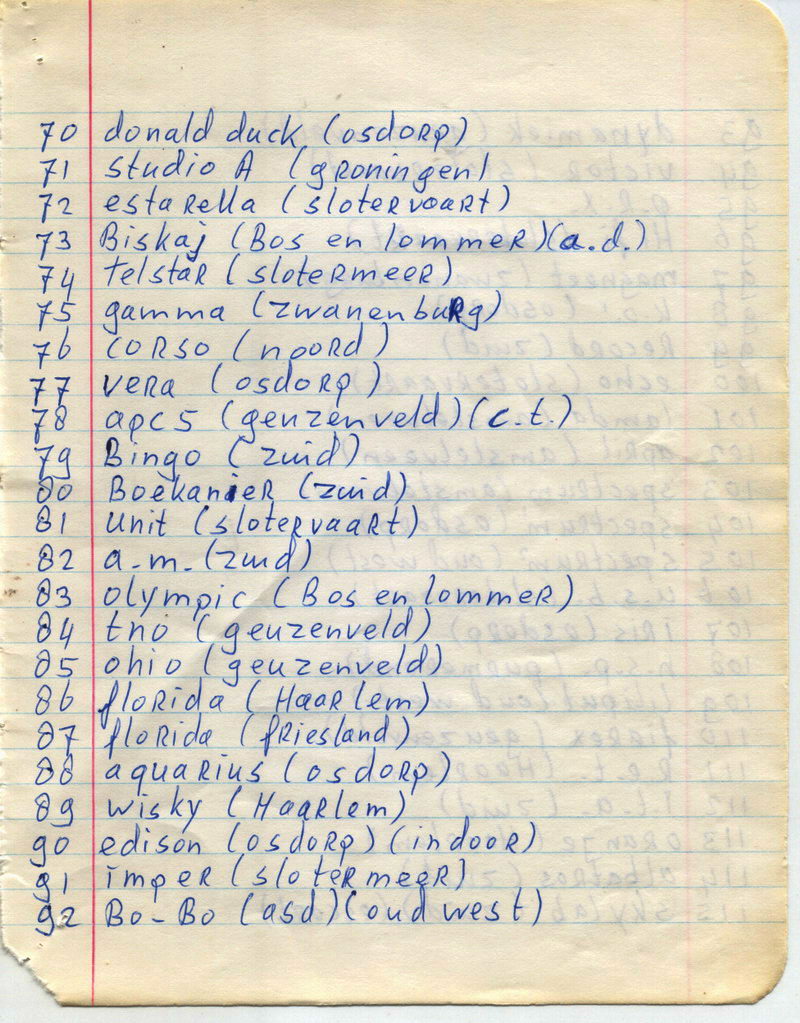 70 donald duck (osdorp)
71 studio A (groningen)
72 estarella (slotervaart)
73 Biskaj (Bos en lommer)(a.d.)
74 telstar (slotermeer)
75 gamma (zwanenburg)
76 corso (noord)
77 vera (osdorp)
78 apc5 (geuzenveld)(c.t.)
79 Bingo (zuid)
80 Boekanier (zuid)
81 unit (slotervaart)
82 a.m. (zuid)
83 olympic (Bos en lommer)
84 tno (geuzenveld)
85 ohio (geuzenveld)
86 florida (Haarlem)
87 florida (friesland)
88 aquarius (osdorp)
89 wisky (Haarlem)
90 edison (osdorp)(indoor)
91 imper (slotermeer)
92 Bo-Bo (asd)(oud west)